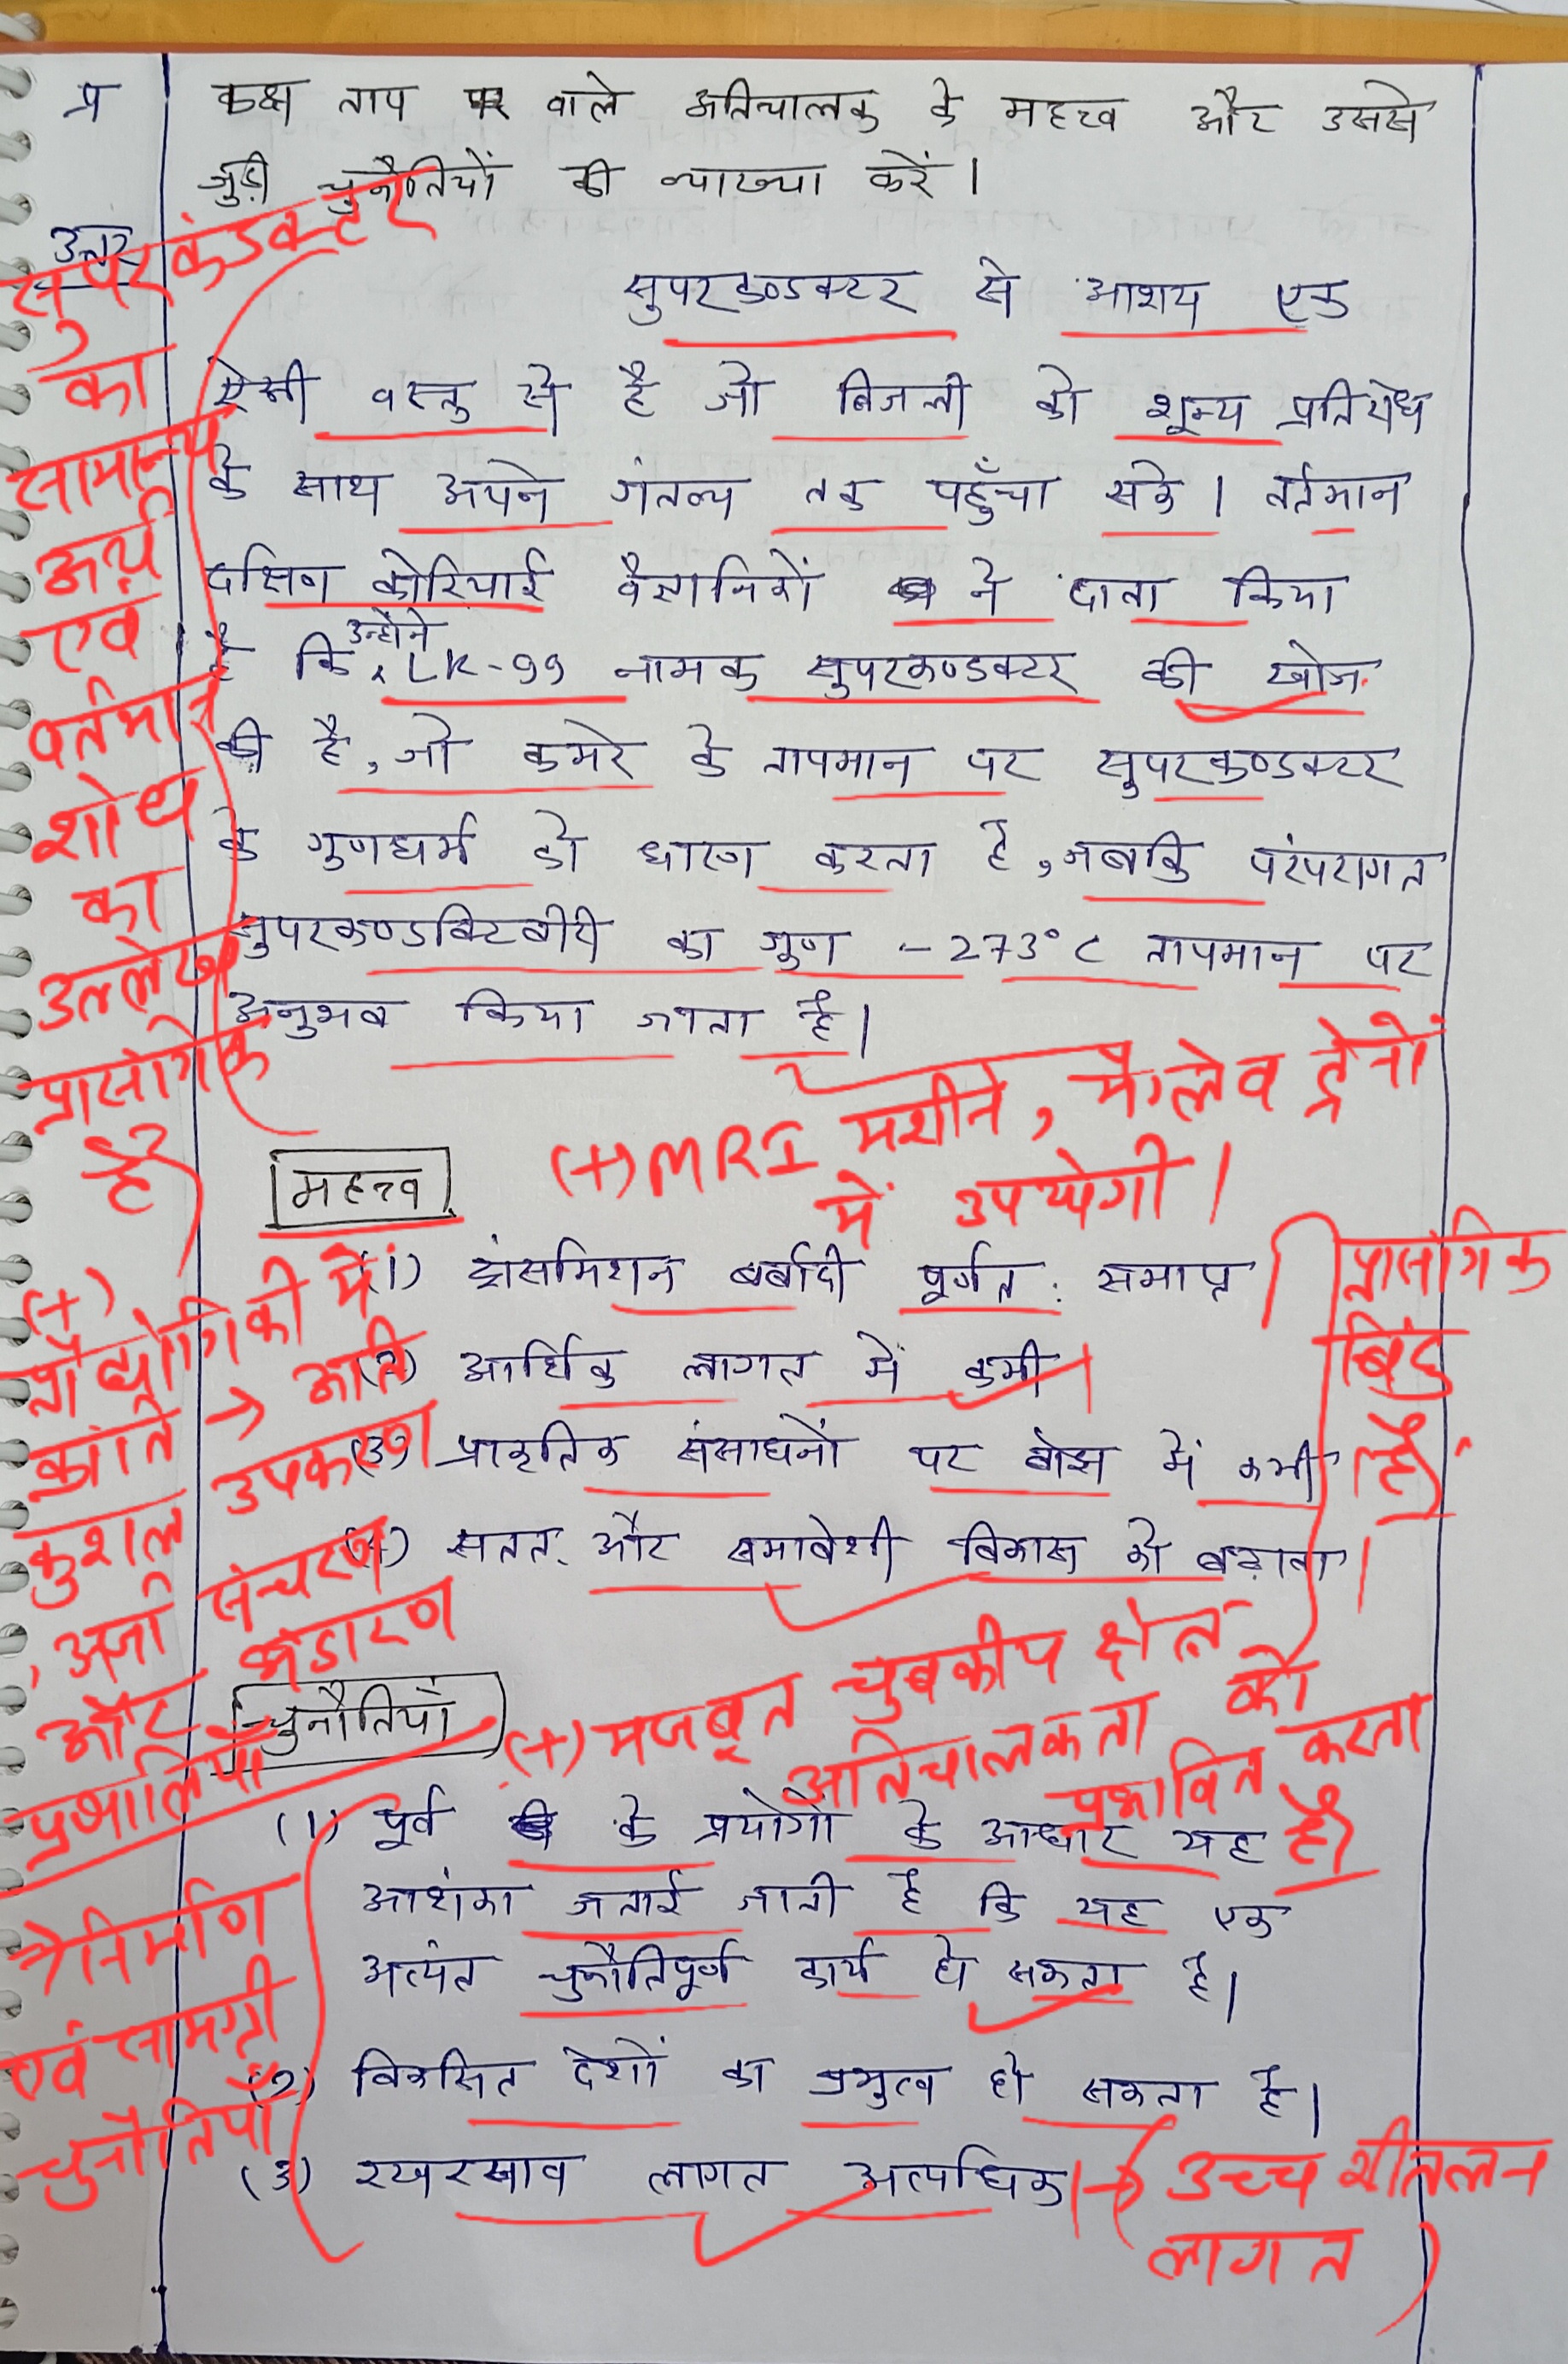 प्र कक्ष ताप पर वाले अतिचालक के महत्त्व और उससे
जुड़ी चुनौतियों की व्याख्या करें।
उत्तर
सुपरकण्डक्टर से आशय एक
ऐसी वस्तु से है जो बिजली को शून्य प्रतिरोध
के साथ अपने गंतव्य तक पहुँचा सके। वर्तमान
दक्षिण कोरियाई वैज्ञानिकों ने दावा किया
है कि उन्होंने LK-99 नामक सुपरकण्डक्टर की खोज
की है, जो कमरे के तापमान पर सुपरकण्डक्टर
के गुणधर्म को धारण करता है, जबकि परंपरागत
सुपरकण्डक्टिवीटी का गुण -273°C तापमान पर
अनुभव किया जाता है।
सुपरकंडक्टर
का
सामान्य
अर्थ
एवं
वर्तमान
शोध
का
उल्लेख
प्रासंगिक
है
(+) MRI मशीनें, मैग्लेव ट्रेनों
में उपयोगी।
महत्त्व
(1) ट्रांसमिशन बर्बादी पूर्णत: समाप्त
(2) आर्थिक लागत में कमी
(3) प्राकृतिक संसाधनों पर बोझ में कमी
(4) सतत और समावेशी विकास को बढ़ावा।
प्रासंगिक
बिंदु
है
(+)
प्रौद्योगिकी में
क्रांति → अति
कुशल उपकरण
, ऊर्जा संचरण
और भंडारण
प्रणालियाँ
चुनौतियाँ
(+) मजबूत चुबकीय क्षेत्र
अतिचालकता को
प्रभावित करता
है
(1) पूर्व के प्रयोगों के आधार यह
आशंका जताई जाती है कि यह एक
अत्यंत चुनौतिपूर्ण कार्य हो सकता है।
(2) विकसित देशों का प्रभुत्व हो सकता है।
(3) रखरखाव लागत अत्यधिक
→ निर्माण
एवं सामग्री
चुनौतियाँ
→ उच्च शीतलन
लागत